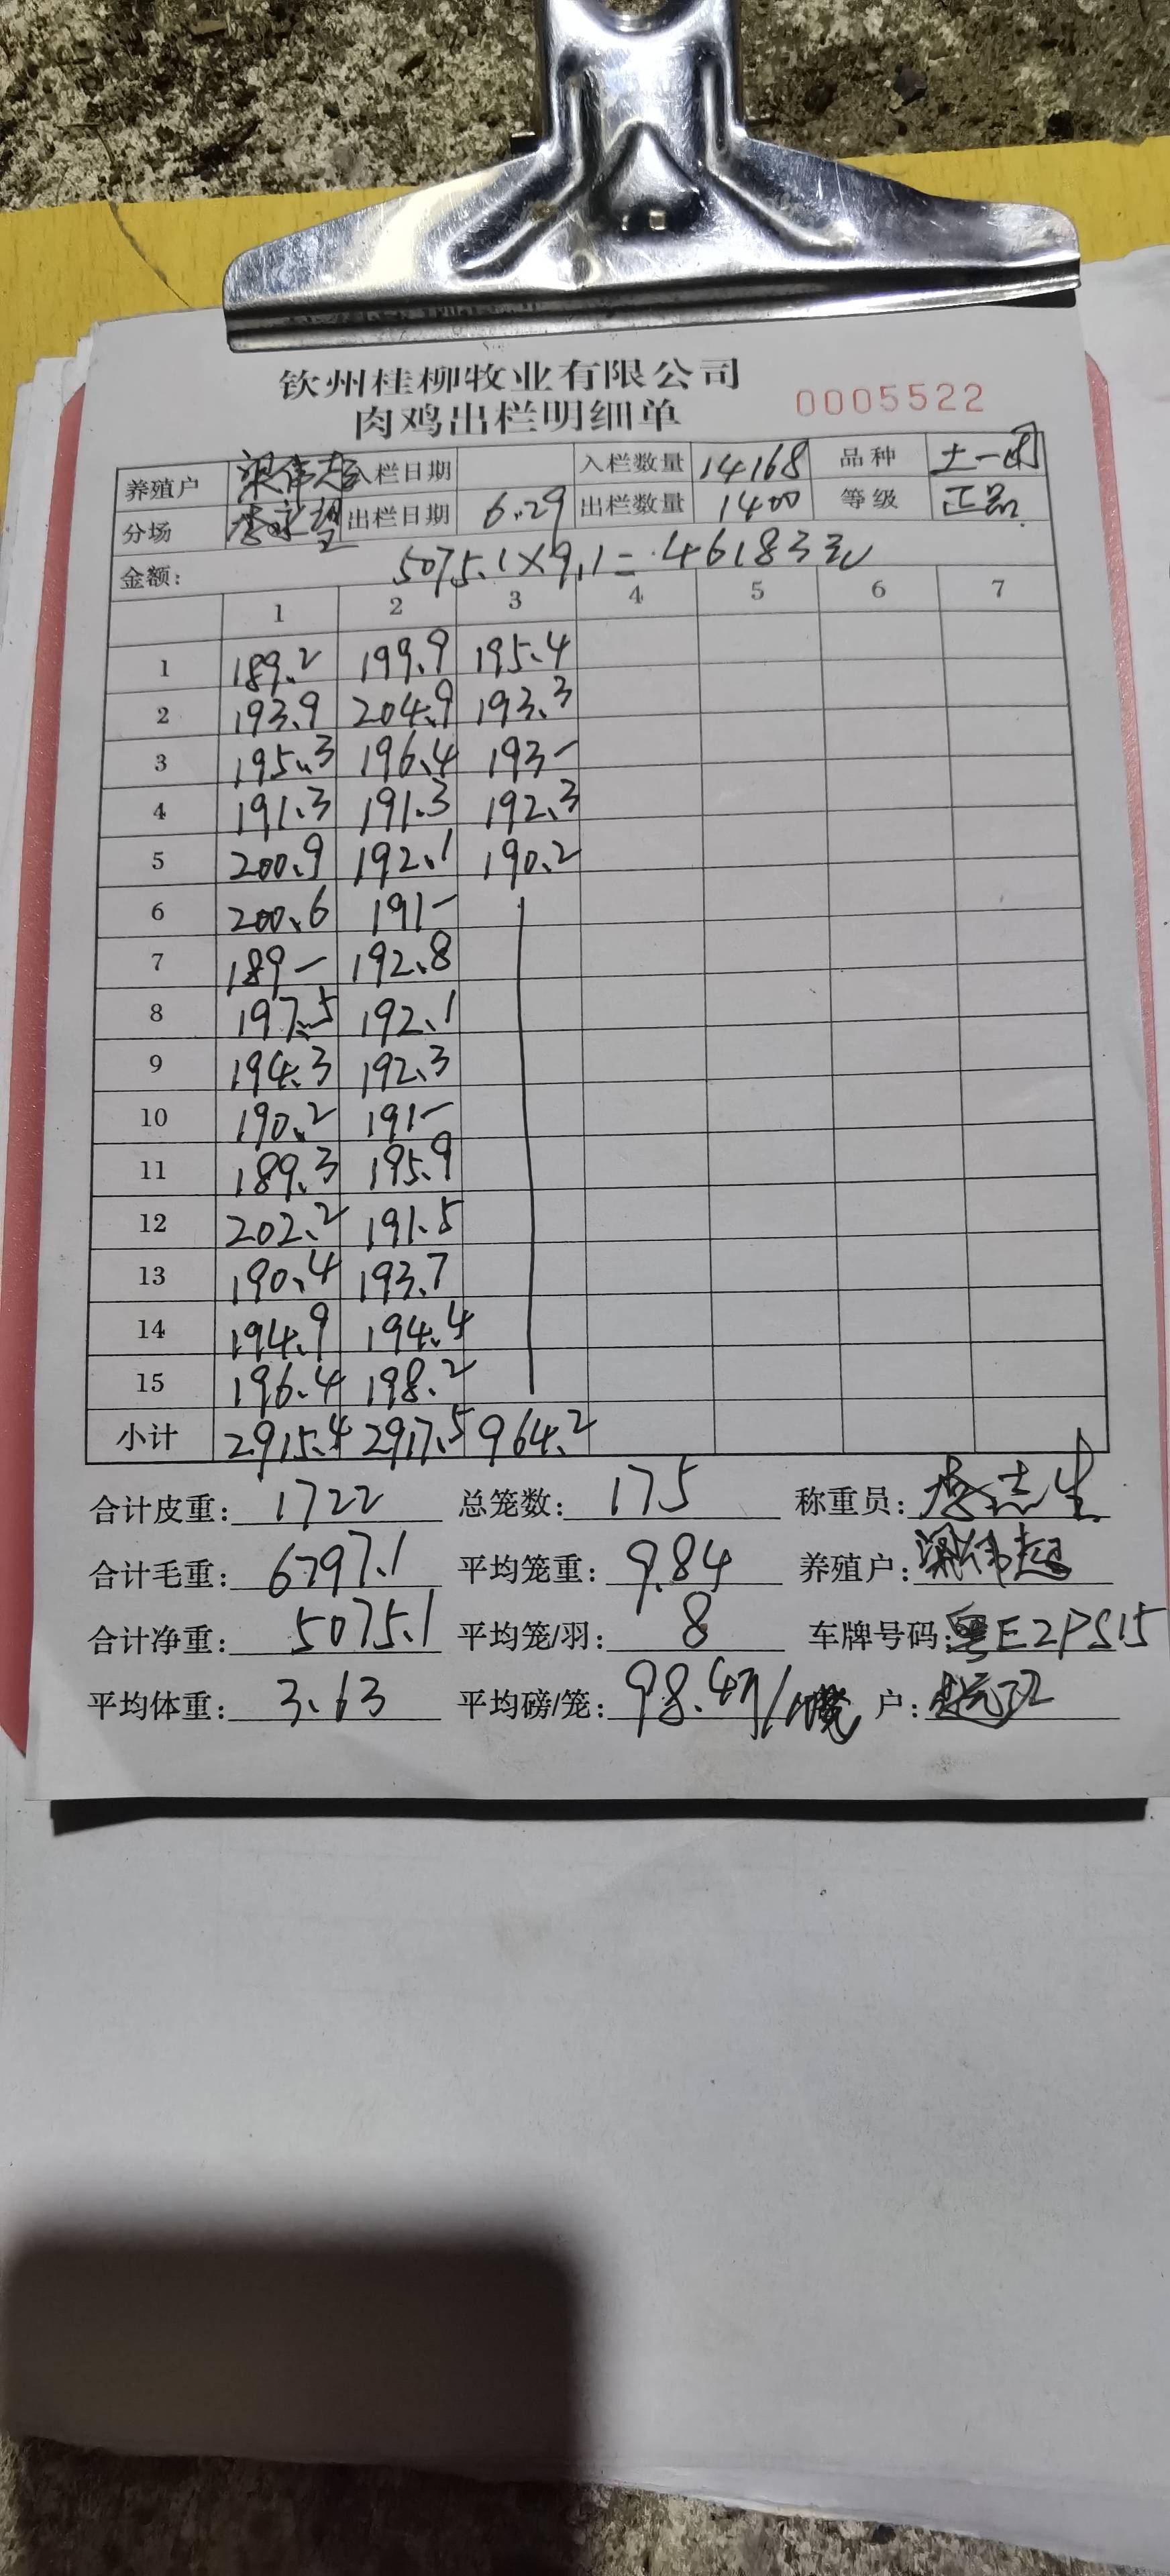 钦州桂柳牧业有限公司
肉鸡出栏明细单 0005522
养殖户 梁伟超 入栏日期 入栏数量 14168 品种 土一
分场 李永望 出栏日期 6.29 出栏数量 1400 等级 正品
金额: 5075.1×9.1=46183元
1 2 3 4 5 6 7
1 189.2 199.9 195.4
2 193.9 204.9 193.3
3 195.3 196.4 193-
4 191.3 191.3 192.3
5 200.9 192.1 190.2
6 200.6 191-
7 189- 192.8
8 197.5 192.1
9 194.3 192.3
10 190.2 191-
11 189.3 195.9
12 202.2 191.5
13 190.4 193.7
14 194.9 194.4
15 196.4 198.2
小计 2915.4 2917.5 964.2
合计皮重: 1722 总笼数: 175 称重员:
合计毛重: 6797.1 平均笼重: 9.84 养殖户: 梁伟超
合计净重: 5075.1 平均笼/羽: 8 车牌号码: 粤E2PS15
平均体重: 3.63 平均磅/笼: 98.4 户: